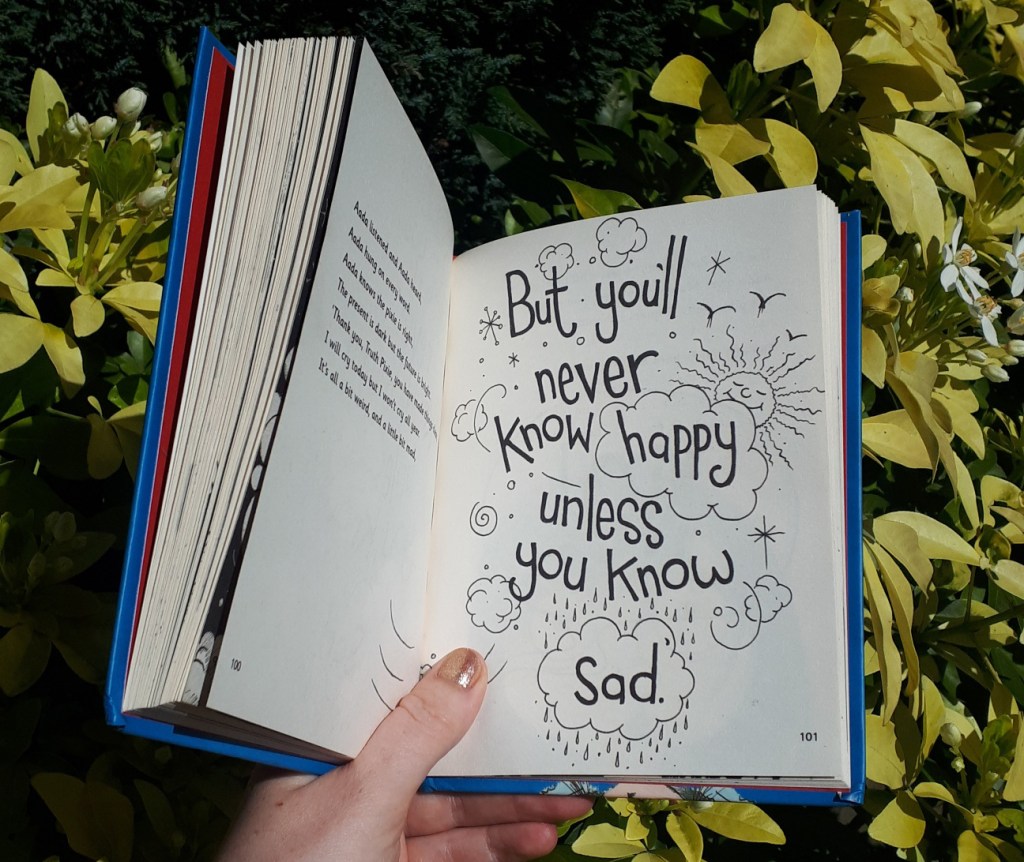 Aada listened and Aada heard.
Aada hung on every word.
Aada knows the pixie is right.
The present is dark but the future is bright.
'Thank you, Truth Pixie, you have made things
I will cry today but I won't cry all year.
It's all a bit weird, and a little bit mad,
100
But you'll
never
know happy
unless
you know
sad.
101